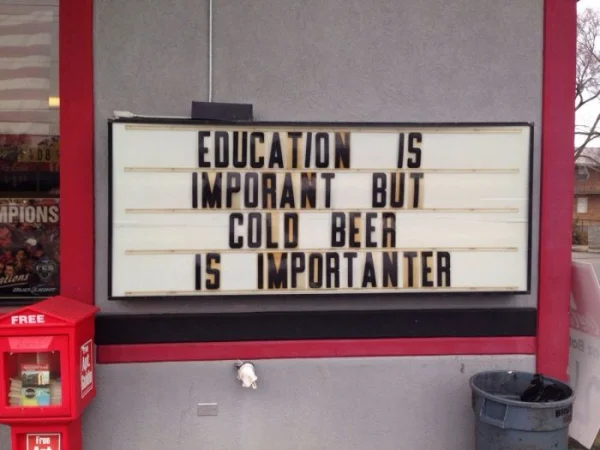 EDUCATION IS
IMPORANT BUT
COLD BEER
IS IMPORTANTER
MPIONS
FREE
Free